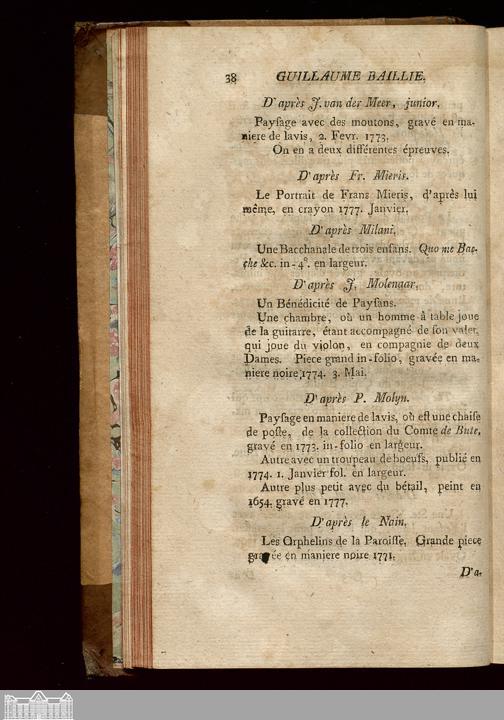 38 GUILLAUME BAILLIE.
D'après J. van der Meer, junior.
Payſage avec des moutons, gravé en ma-
niere de lavis, 2. Fevr. 1773.
On en a deux différentes épreuves.
D'après Fr. Mieris.
Le Portrait de Frans Mieris, d'après lui
même, en crayon 1777. Janvier.
D'après Milani.
Une Bacchanale de trois enfans. Quo me Bac-
che &c. in-4°. en largeur.
D'après J. Molenaar.
Un Bénédicité de Payſans.
Une chambre, où un homme à table joue
de la guitarre, étant accompagné de ſon valet,
qui joue du violon, en compagnie de deux
Dames. Piece grand in-folio, gravée en ma-
niere noire, 1774. 3. Mai.
D'après P. Molyn.
Payſage en maniere de lavis, où eſt une chaiſe
de poſte, de la collection du Comte de Bute,
gravé en 1773. in-folio en largeur.
Autre avec un troupeau de boeufs, publié en
1774. 1. Janvier fol. en largeur.
Autre plus petit avec du bétail, peint en
1654. gravé en 1777.
D'après le Nain.
Les Orphelins de la Paroiſſe. Grande piece
gravée en maniere noire 1771.
D'a-